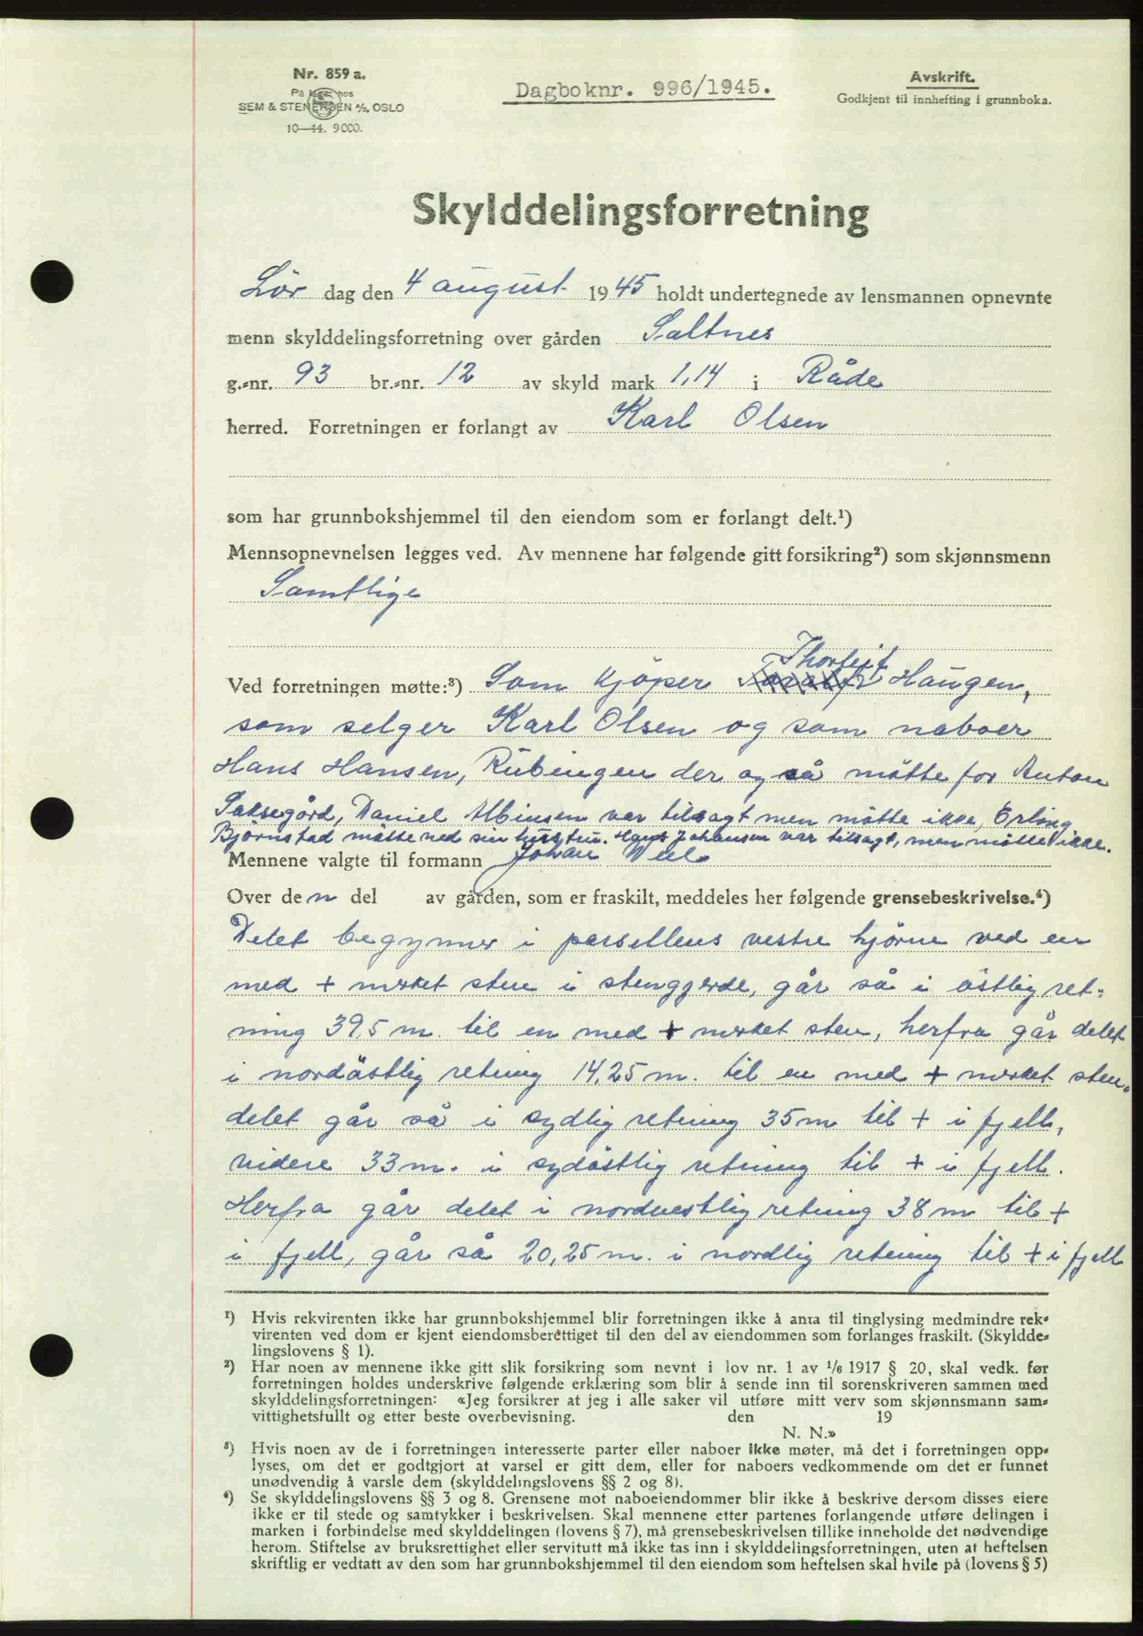 Nr. 859 a.
På lager hos
SEM & STENERSEN A/S, OSLO
10—44. 9000.
Dagboknr. 996/1945.
Avskrift.
Godkjent til innhefting i grunnboka.
Skylddelingsforretning
Lör dag den 4 august 1945 holdt undertegnede av lensmannen opnevnte
menn skylddelingsforretning over gården Saltnes
g.-nr. 93 br.-nr. 12 av skyld mark 1,14 i Råde
herred. Forretningen er forlangt av Karl Olsen
som har grunnbokshjemmel til den eiendom som er forlangt delt.¹)
Mennsopnevnelsen legges ved. Av mennene har følgende gitt forsikring²) som skjønnsmenn
Samtlige
Thorleif
Ved forretningen møtte:³) Som kjöper Haugen,
som selger Karl Olsen og som naboer
Hans Hansen, Rubingen der og så mötte for Anton
Saksegård, Daniel Albinsen var tilsagt men mötte ikke, Erling
Bjørnstad mötte ved sin hustru. Hans Johansen var tilsagt, men mötte ikke.
Mennene valgte til formann Johan
Over den del av gården, som er fraskilt, meddeles her følgende grensebeskrivelse.⁴)
Delet begynner i parsellens vestre hjörne ved en
med + merket sten i stenggjerde, går så i östlig ret-
ning 39,5 m. til en med + merket sten, herfra går delet
i nordöstlig retning 14,25 m. til en med + merket sten,
delet går så i sydlig retning 35 m til + i fjell,
videre 33 m. i sydöstlig retning til + i fjell.
Herfra går delet i nordvestlig retning 38 m til +
i fjell, går så 20,25 m. i nordlig retning til + i fjell
¹) Hvis rekvirenten ikke har grunnbokshjemmel blir forretningen ikke å anta til tinglysing medmindre rek-
virenten ved dom er kjent eiendomsberettiget til den del av eiendommen som forlanges fraskilt. (Skyldde-
lingslovens § 1).
²) Har noen av mennene ikke gitt slik forsikring som nevnt i lov nr. 1 av 1/6 1917 § 20, skal vedk. før
forretningen holdes underskrive følgende erklæring som blir å sende inn til sorenskriveren sammen med
skylddelingsforretningen: «Jeg forsikrer at jeg i alle saker vil utføre mitt verv som skjønnsmann sam-
vittighetsfullt og etter beste overbevisning. den 19
N. N.»
³) Hvis noen av de i forretningen interesserte parter eller naboer ikke møter, må det i forretningen opp-
lyses, om det er godtgjort at varsel er gitt dem, eller for naboers vedkommende om det er funnet
unødvendig å varsle dem (skylddelingslovens §§ 2 og 8).
⁴) Se skylddelingslovens §§ 3 og 8. Grensene mot naboeiendommer blir ikke å beskrive dersom disses eiere
ikke er til stede og samtykker i beskrivelsen. Skal mennene etter partenes forlangende utføre delingen i
marken i forbindelse med skylddelingen (lovens § 7), må grensebeskrivelsen tillike inneholde det nødvendige
herom. Stiftelse av bruksrettighet eller servitutt må ikke tas inn i skylddelingsforretningen, uten at heftelsen
skriftlig er vedtatt av den som har grunnbokshjemmel til den eiendom som heftelsen skal hvile på (lovens § 5)